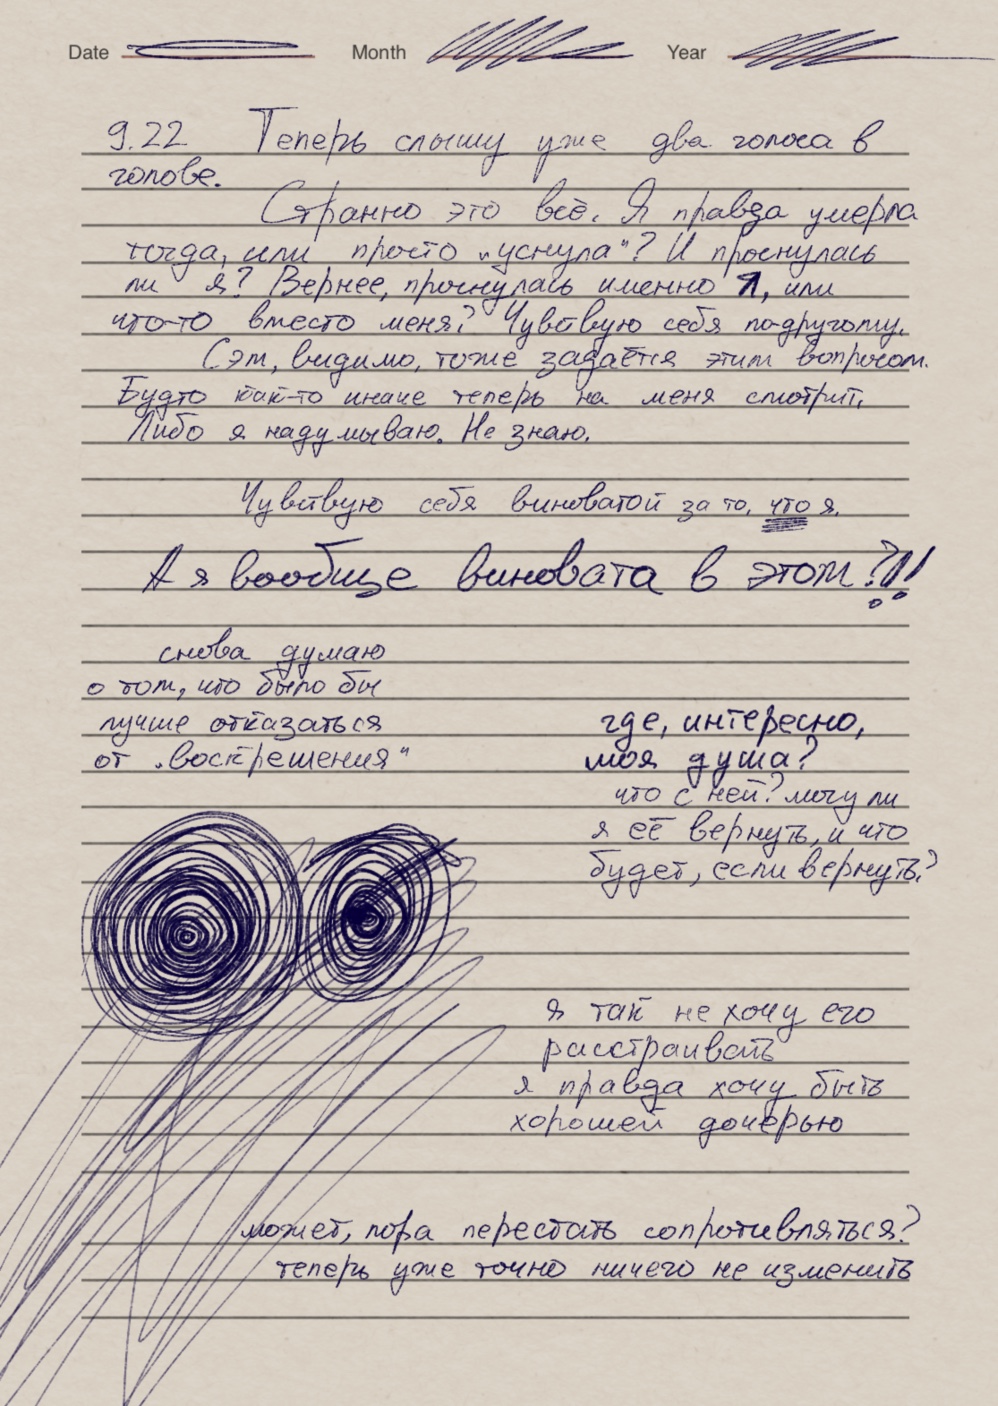 Date Month Year
9.22 Теперь слышу уже два голоса в
голове.
Странно это всё. Я правда умерла
тогда, или просто „уснула“? И проснулась
ли я? Вернее, проснулась именно Я, или
что-то вместо меня? Чувствую себя по-другому.
Сэм, видимо, тоже задаётся этим вопросом.
Будто как-то иначе теперь на меня смотрит.
Либо я надумываю. Не знаю.
Чувствую себя виноватой за то, что я.
А я вообще виновата в этом?!!
снова думаю
о том, что было бы
лучше отказаться
от „воскрешения“
где, интересно,
моя душа?
что с ней? могу ли
я её вернуть, и что
будет, если вернуть?
я так не хочу его
расстраивать
я правда хочу быть
хорошей дочерью
может, пора перестать сопротивляться?
теперь уже точно ничего не изменить